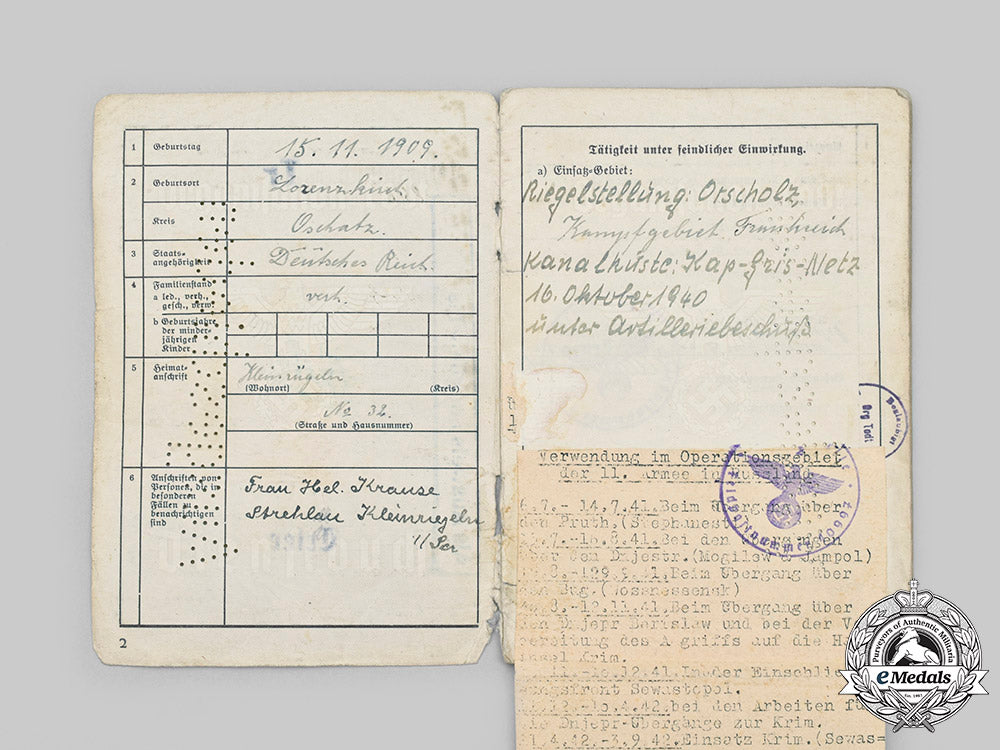 1 Geburtstag 15. 11. 1909.
2 Geburtsort Lorenzkirch
Kreis Oschatz.
3 Staats-
angehörigkeit Deutsches Reich.
4 Familienstand
a led., verh., verh.
gesch., verw.
b Geburtsjahre
der minder-
jährigen
Kinder
5 Heimat-
anschrift
(Wohnort) (Kreis)
No 32.
(Straße und Hausnummer)
6 Anschriften von
Personen, die in
besonderen
Fällen zu
benachrichtigen
sind
Frau Hel. Krause
Strehlau Kleinriegeln
2
Tätigkeit unter feindlicher Einwirkung.
a) Einsatz-Gebiet:
Riegelstellung: Orscholz
Kampfgebiet Frankreich
Kanalküste: Kap-Gris-Netz
16. Oktober 1940
unter Artilleriebeschuß
Org Todt
Verwendung im Operationsgebiet
der 11. Armee in Russland
6.7.- 14.7.41. Beim Übergang über
den Pruth. (Stephanest
.7.- 16.8.41. Bei den
über den Dnjestr. (Mogilew & Jampol)
Beim Übergang über
den Bug. (Wossnessensk)
.8.-12.11.41. Beim Übergang über
den Dnjepr Berislaw und bei der V
bereitung des Angriffs auf die Ha
insel Krim.
.11.- 16.12.41. In der Einschlie
ungsfront Sewastopol.
.12.- 15.4.42. bei den Arbeiten fü
die Dnjepr-Übergänge zur Krim.
.4.42.-3.9.42. Einsatz Krim. (Sewas=
Feldpostnummer
Purveyors of Authentic Militaria
eMedals